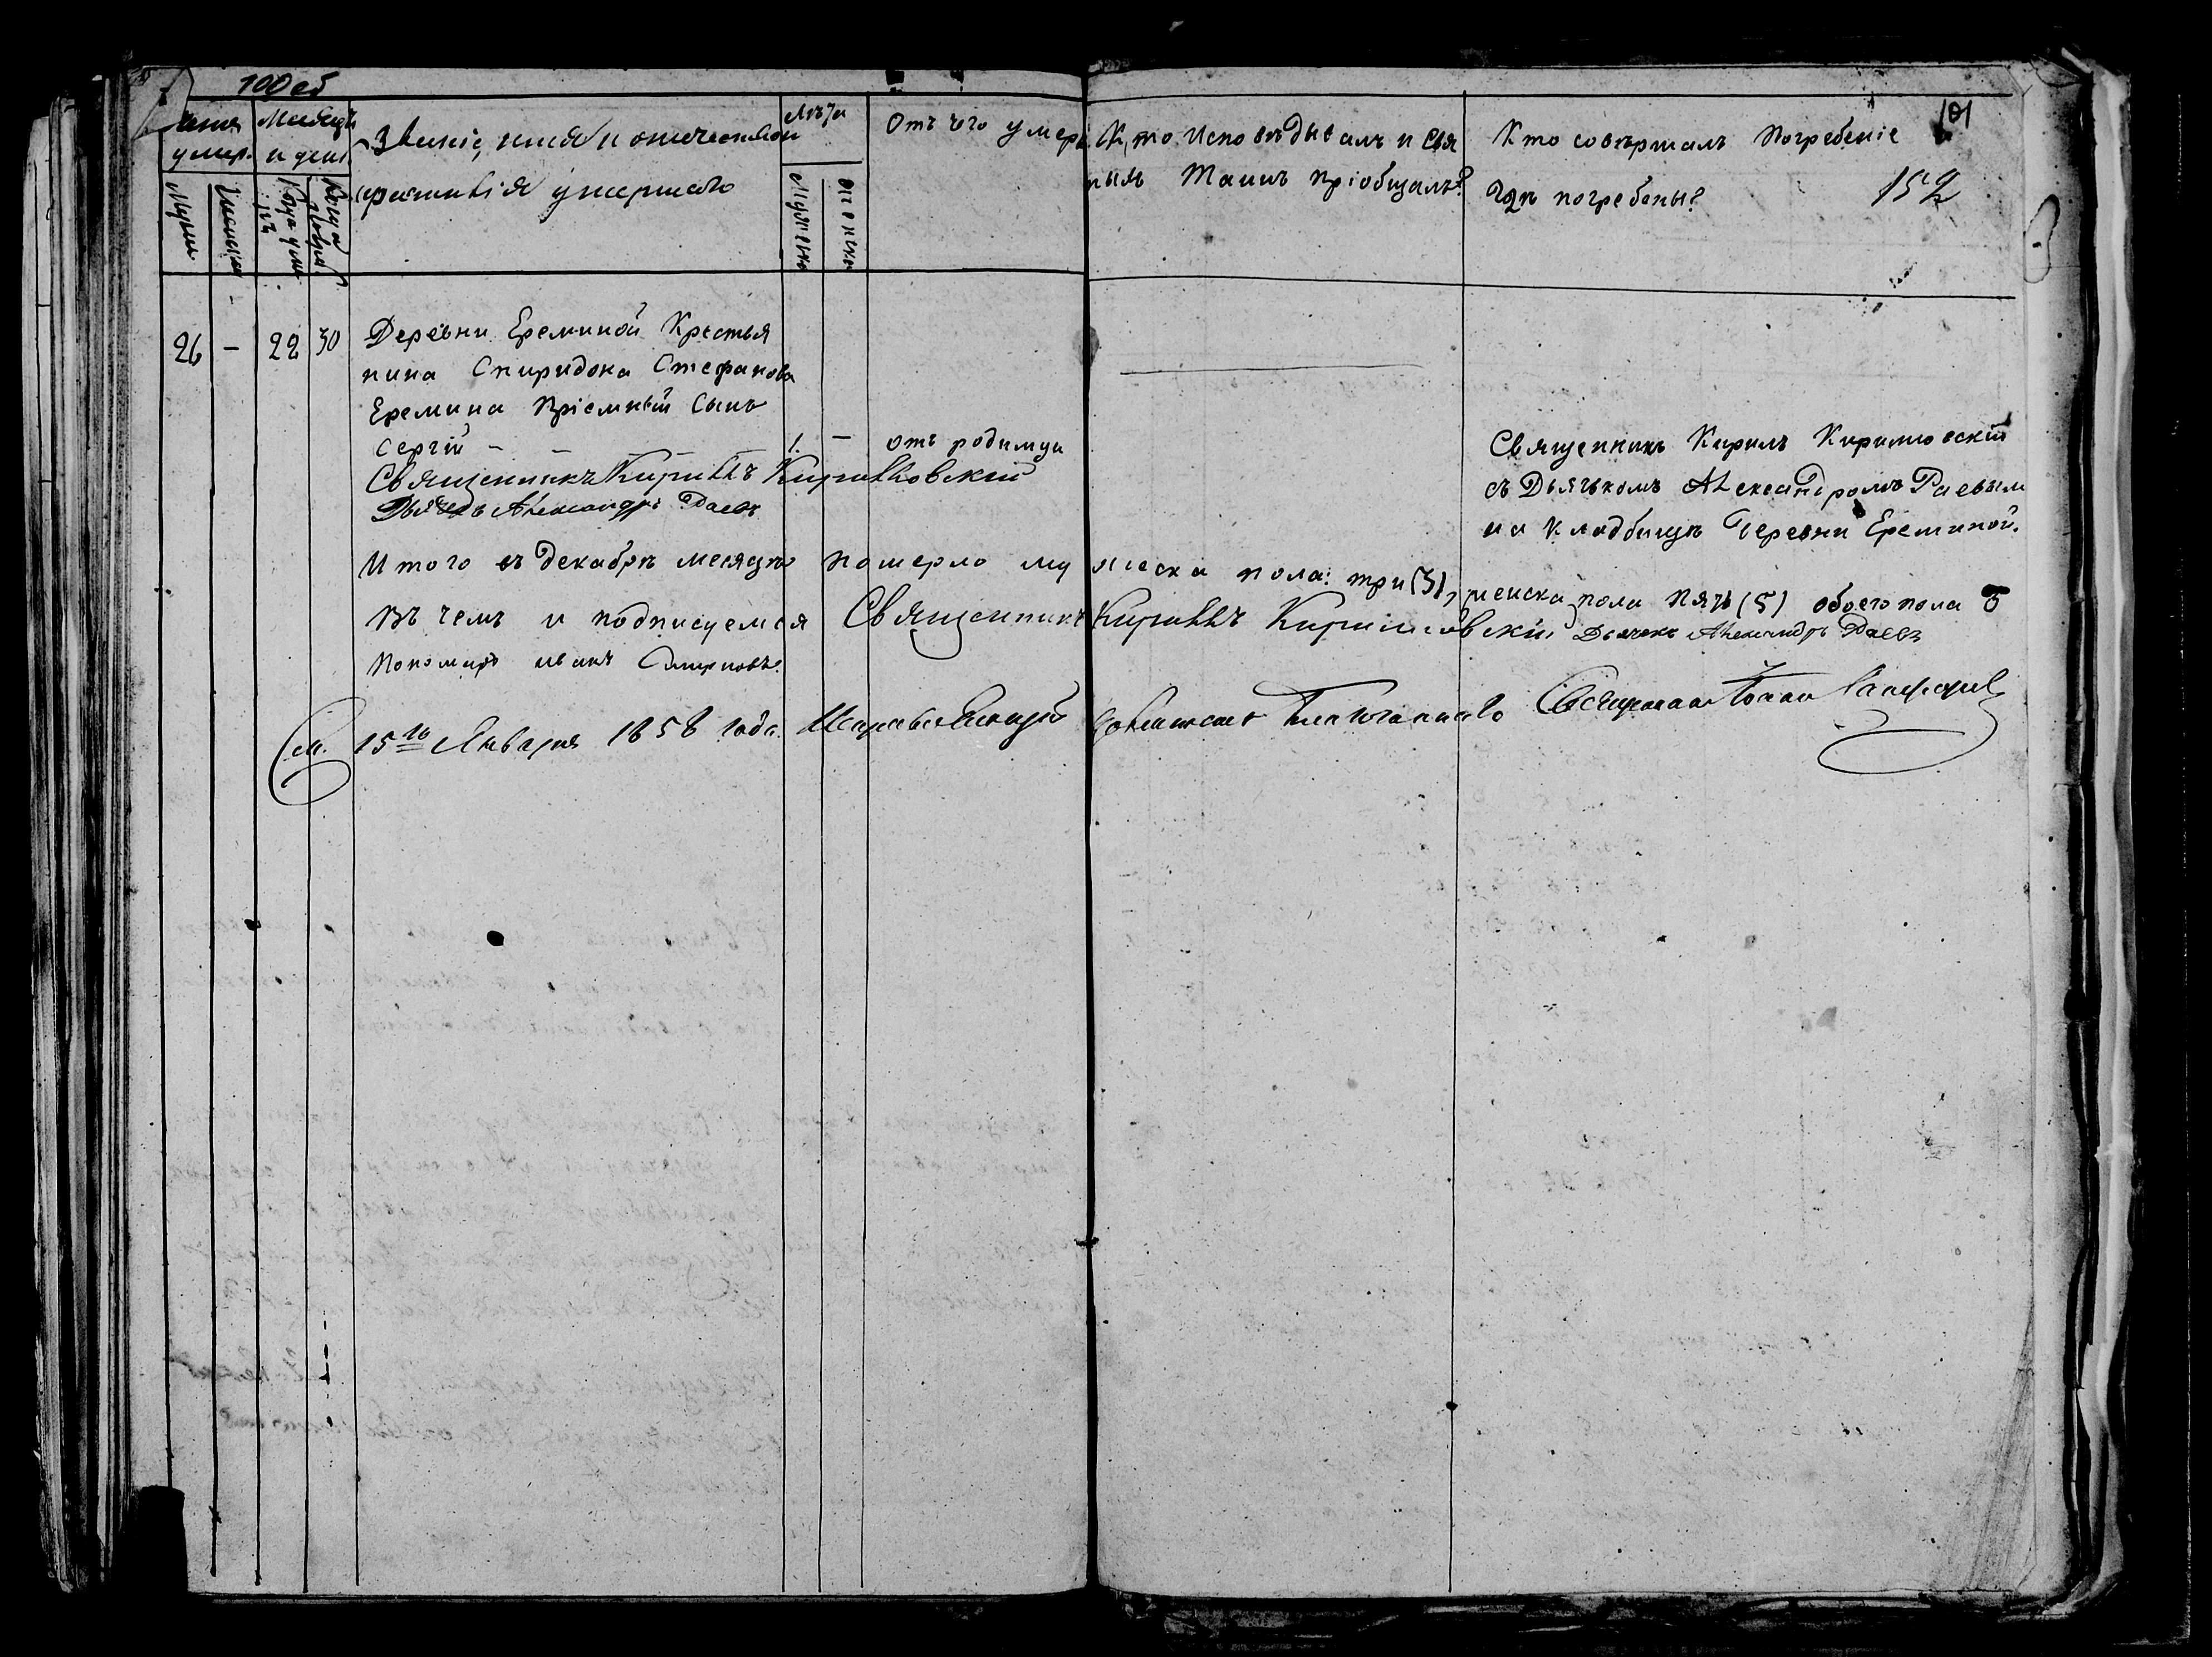 100 об
101
152
умер.
Месяцъ
и день
Мужеск
Женска
Когда умер
Званіе, имя и отечество и
фамилія умершаго
Лѣта
Мужеска
Женска
Отъ чего умеръ
Кто исповѣдывалъ и свя
ныхъ Таинъ пріобщалъ?
Кто совершалъ погребеніе
Гдѣ погребены?
26 - 22 30
Деревни Ереминой Крестья
нина Спиридона Стефанова
Еремина пріемный сынъ
Сергій - 1. - отъ родимца
Священникъ Кириллъ Кирилловскій
Дьячекъ Александръ Раевъ
Священникъ Кирилъ Кириловскій
съ Дьячькомъ Александромъ Раевым
на кладбищѣ деревни Ереминой.
Итого въ декабрѣ месяцѣ померло мужеска пола: три (3), женска пола пять (5) обоего пола
въ чемъ и подписуемся Священникъ Кириллъ Кирилловскій Дьячекъ Александръ Раевъ
Пономарь Иванъ Смирновъ.
15го Января 1858 года. Священникъ Іоаннъ